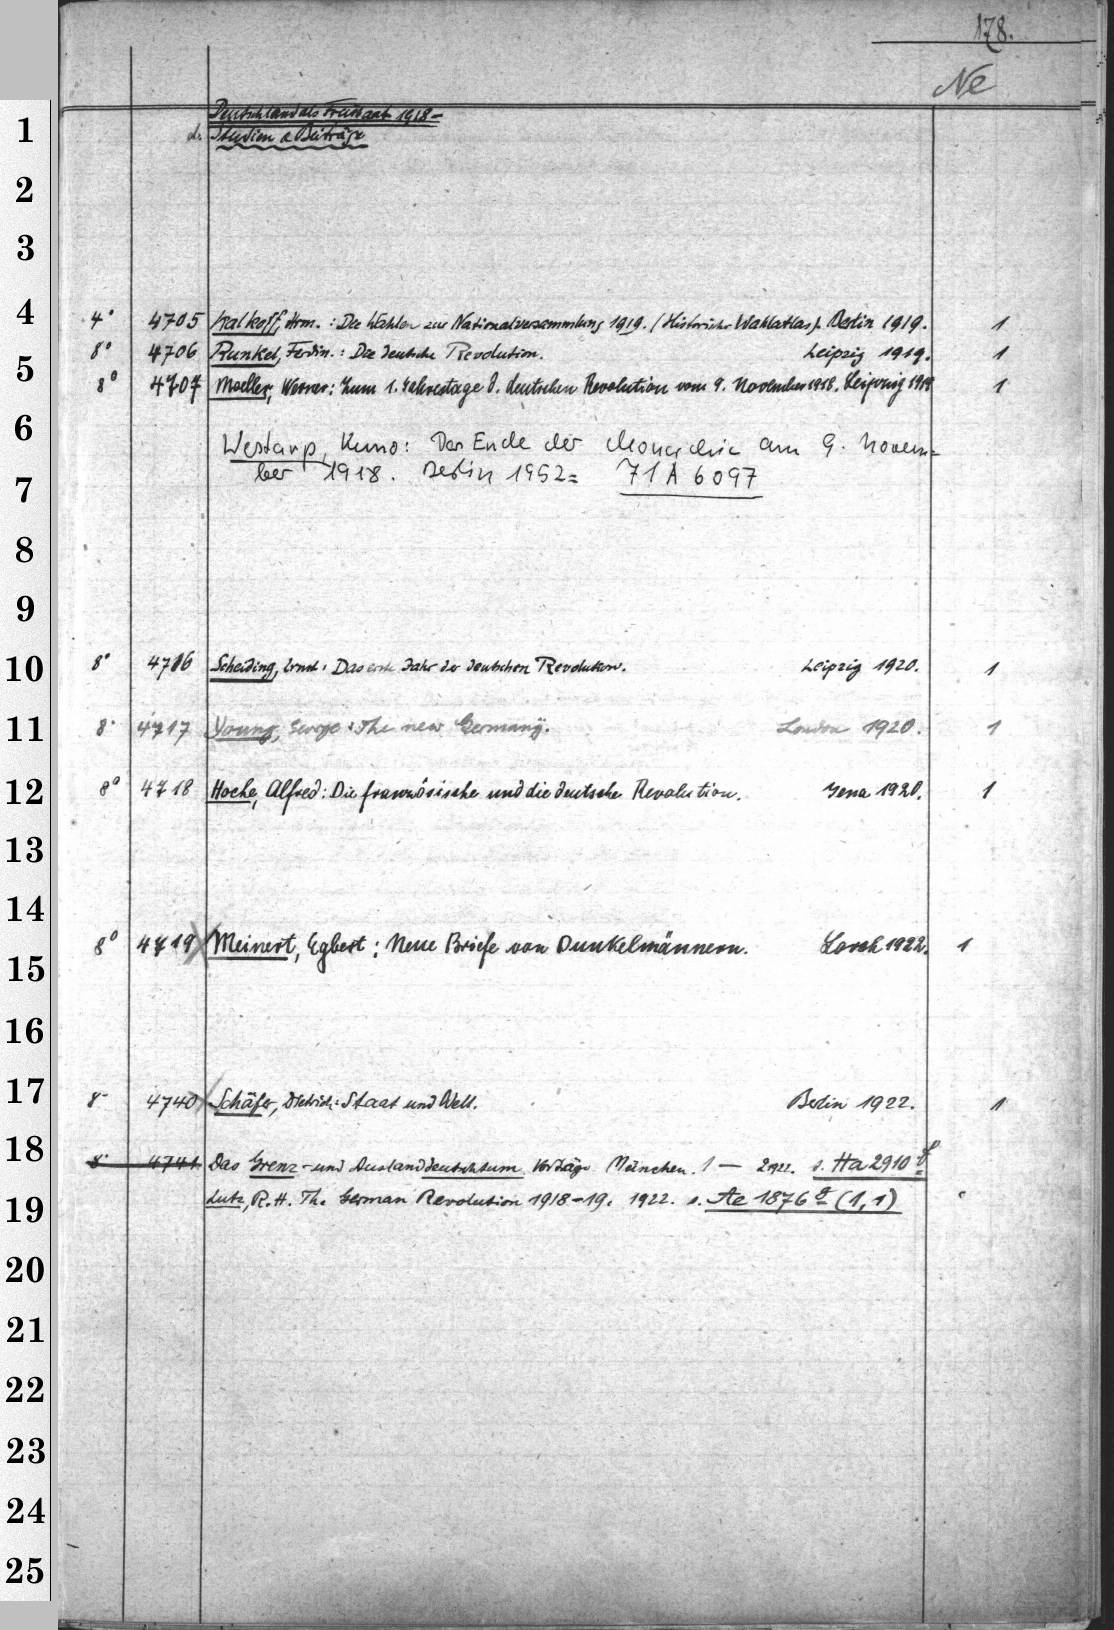 178.
Ne
1 Deutschland als Freistaat 1918–
d. Studien u. Beiträge
2
3
4 4° 4705 Kalkoff, Hrm.: Die Wahlen zur Nationalversammlung 1919. (Historischer Wahlatlas). Berlin 1919. 1
5 8° 4706 Runkel, Ferdin.: Die deutsche Revolution. Leipzig 1919. 1
8° 4707 Moeller, Werner: Zum 1. Jahrestage d. deutschen Revolution vom 9. November 1918. Leipzig 1919 1
6 Westarp, Kuno: Das Ende der Monarchie am 9. Novem=
7 ber 1918. Berlin 1952= 71 A 6097
8
9
10 8° 4716 Scheiding, Ernst: Das erste Jahr der deutschen Revolution. Leipzig 1920. 1
11 8° 4717 Young, George: The new Germany. London 1920. 1
12 8° 4718 Hoche, Alfred: Die französische und die deutsche Revolution. Jena 1920. 1
13
14
15 8° 4719 Meinert, Egbert: Neue Briefe von Dunkelmännern. Lorch 1922. 1
16
17 8° 4740 Schäfer, Dietrich: Staat und Welt. Berlin 1922. 1
18 8° 4741 Das Grenz- und Auslanddeutschtum. Vorträge München. 1 — 1922. s. Ha 2910
19 Lutz, R. H. The German Revolution 1918–19. 1922. s. Ae 1876 8 (1,1)
20
21
22
23
24
25